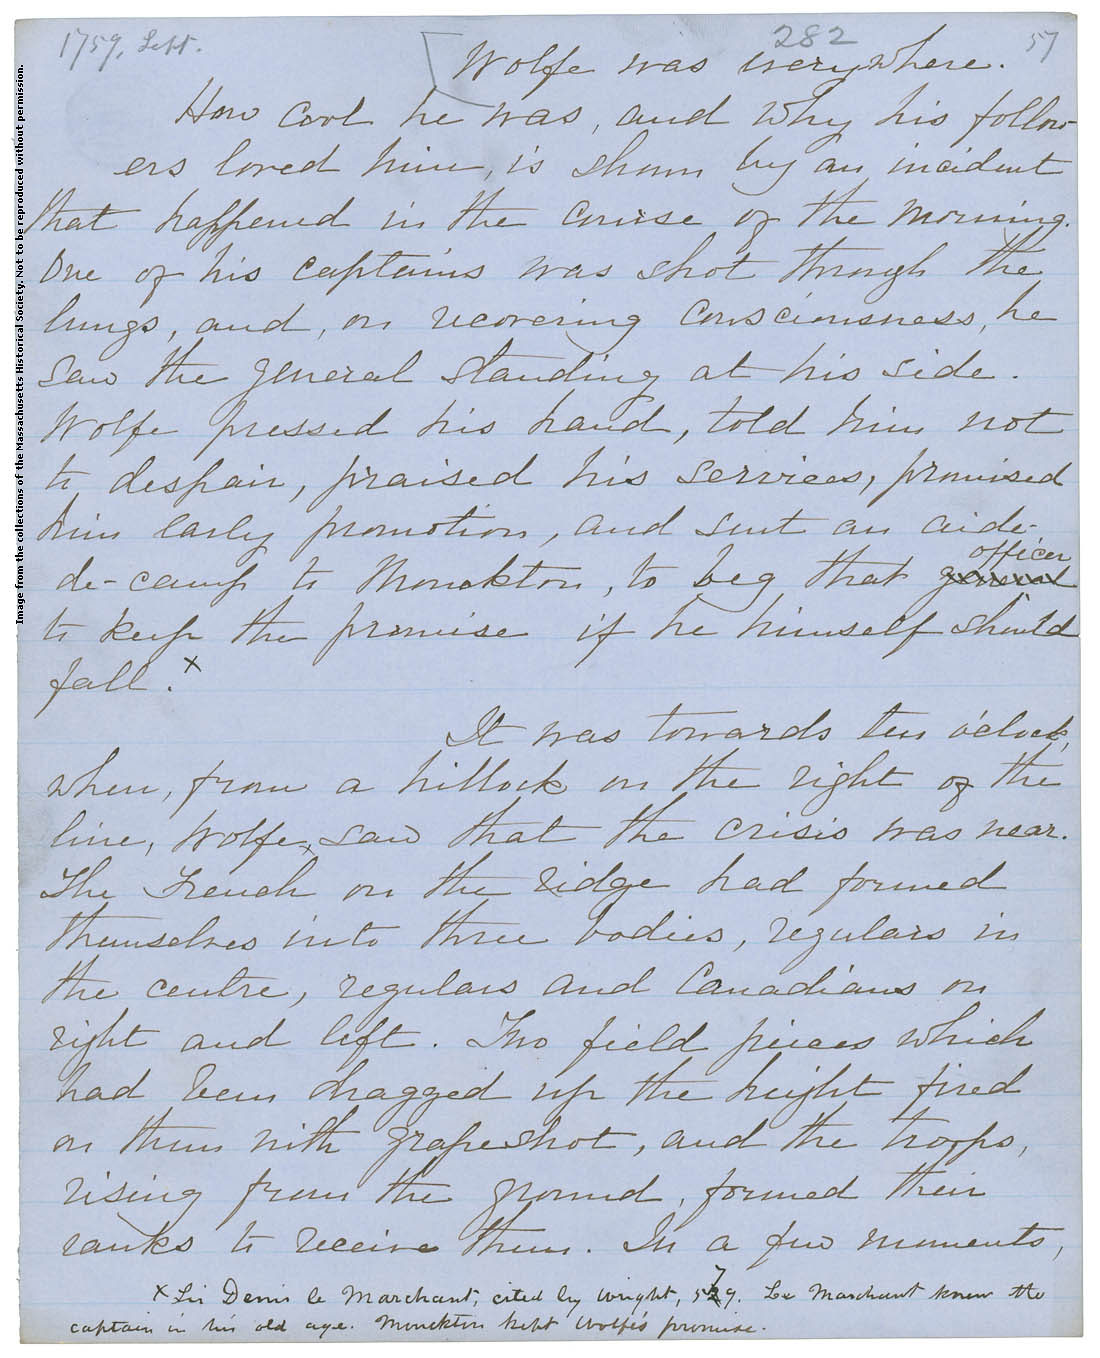 1759, Sept.
282
57
Wolfe was everywhere.
How cool he was, and why his follow-
ers loved him, is shown by an incident
that happened in the course of the morning.
One of his captains was shot through the
lungs, and, on recovering consciousness, he
saw the general standing at his side.
Wolfe pressed his hand, told him not
to despair, praised his services, promised
him early promotion, and sent an aide-
officer
de-camp to Monckton, to beg that general
to keep the promise if he himself should
fall. x
It was towards ten o'clock,
when, from a hillock on the right of the
line, Wolfe, saw that the crisis was near.
The French on the ridge had formed
themselves into three bodies, regulars in
the centre, regulars and Canadians on
right and left. Two field pieces which
had been dragged up the height fired
on them with grapeshot, and the troops,
rising from the ground, formed their
ranks to receive them. In a few moments,
x Sir Denis le Marchant, cited by Wright, 579. Le Marchant knew the
captain in his old age. Monckton kept Wolfe's promise.
Image from the collections of the Massachusetts Historical Society. Not to be reproduced without permission.